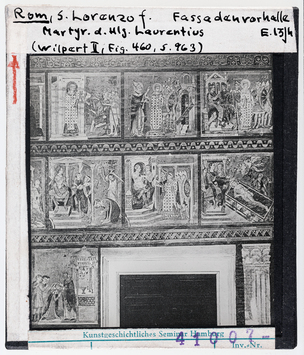 Rom, S. Lorenzo f. Fassadenvorhalle
Martyr. d. Hlg. Laurentius E.13Jh
(Wilpert II, Fig. 460, S. 963)
Kunstgeschichtliches Seminar Hamburg
Inv.-Nr.